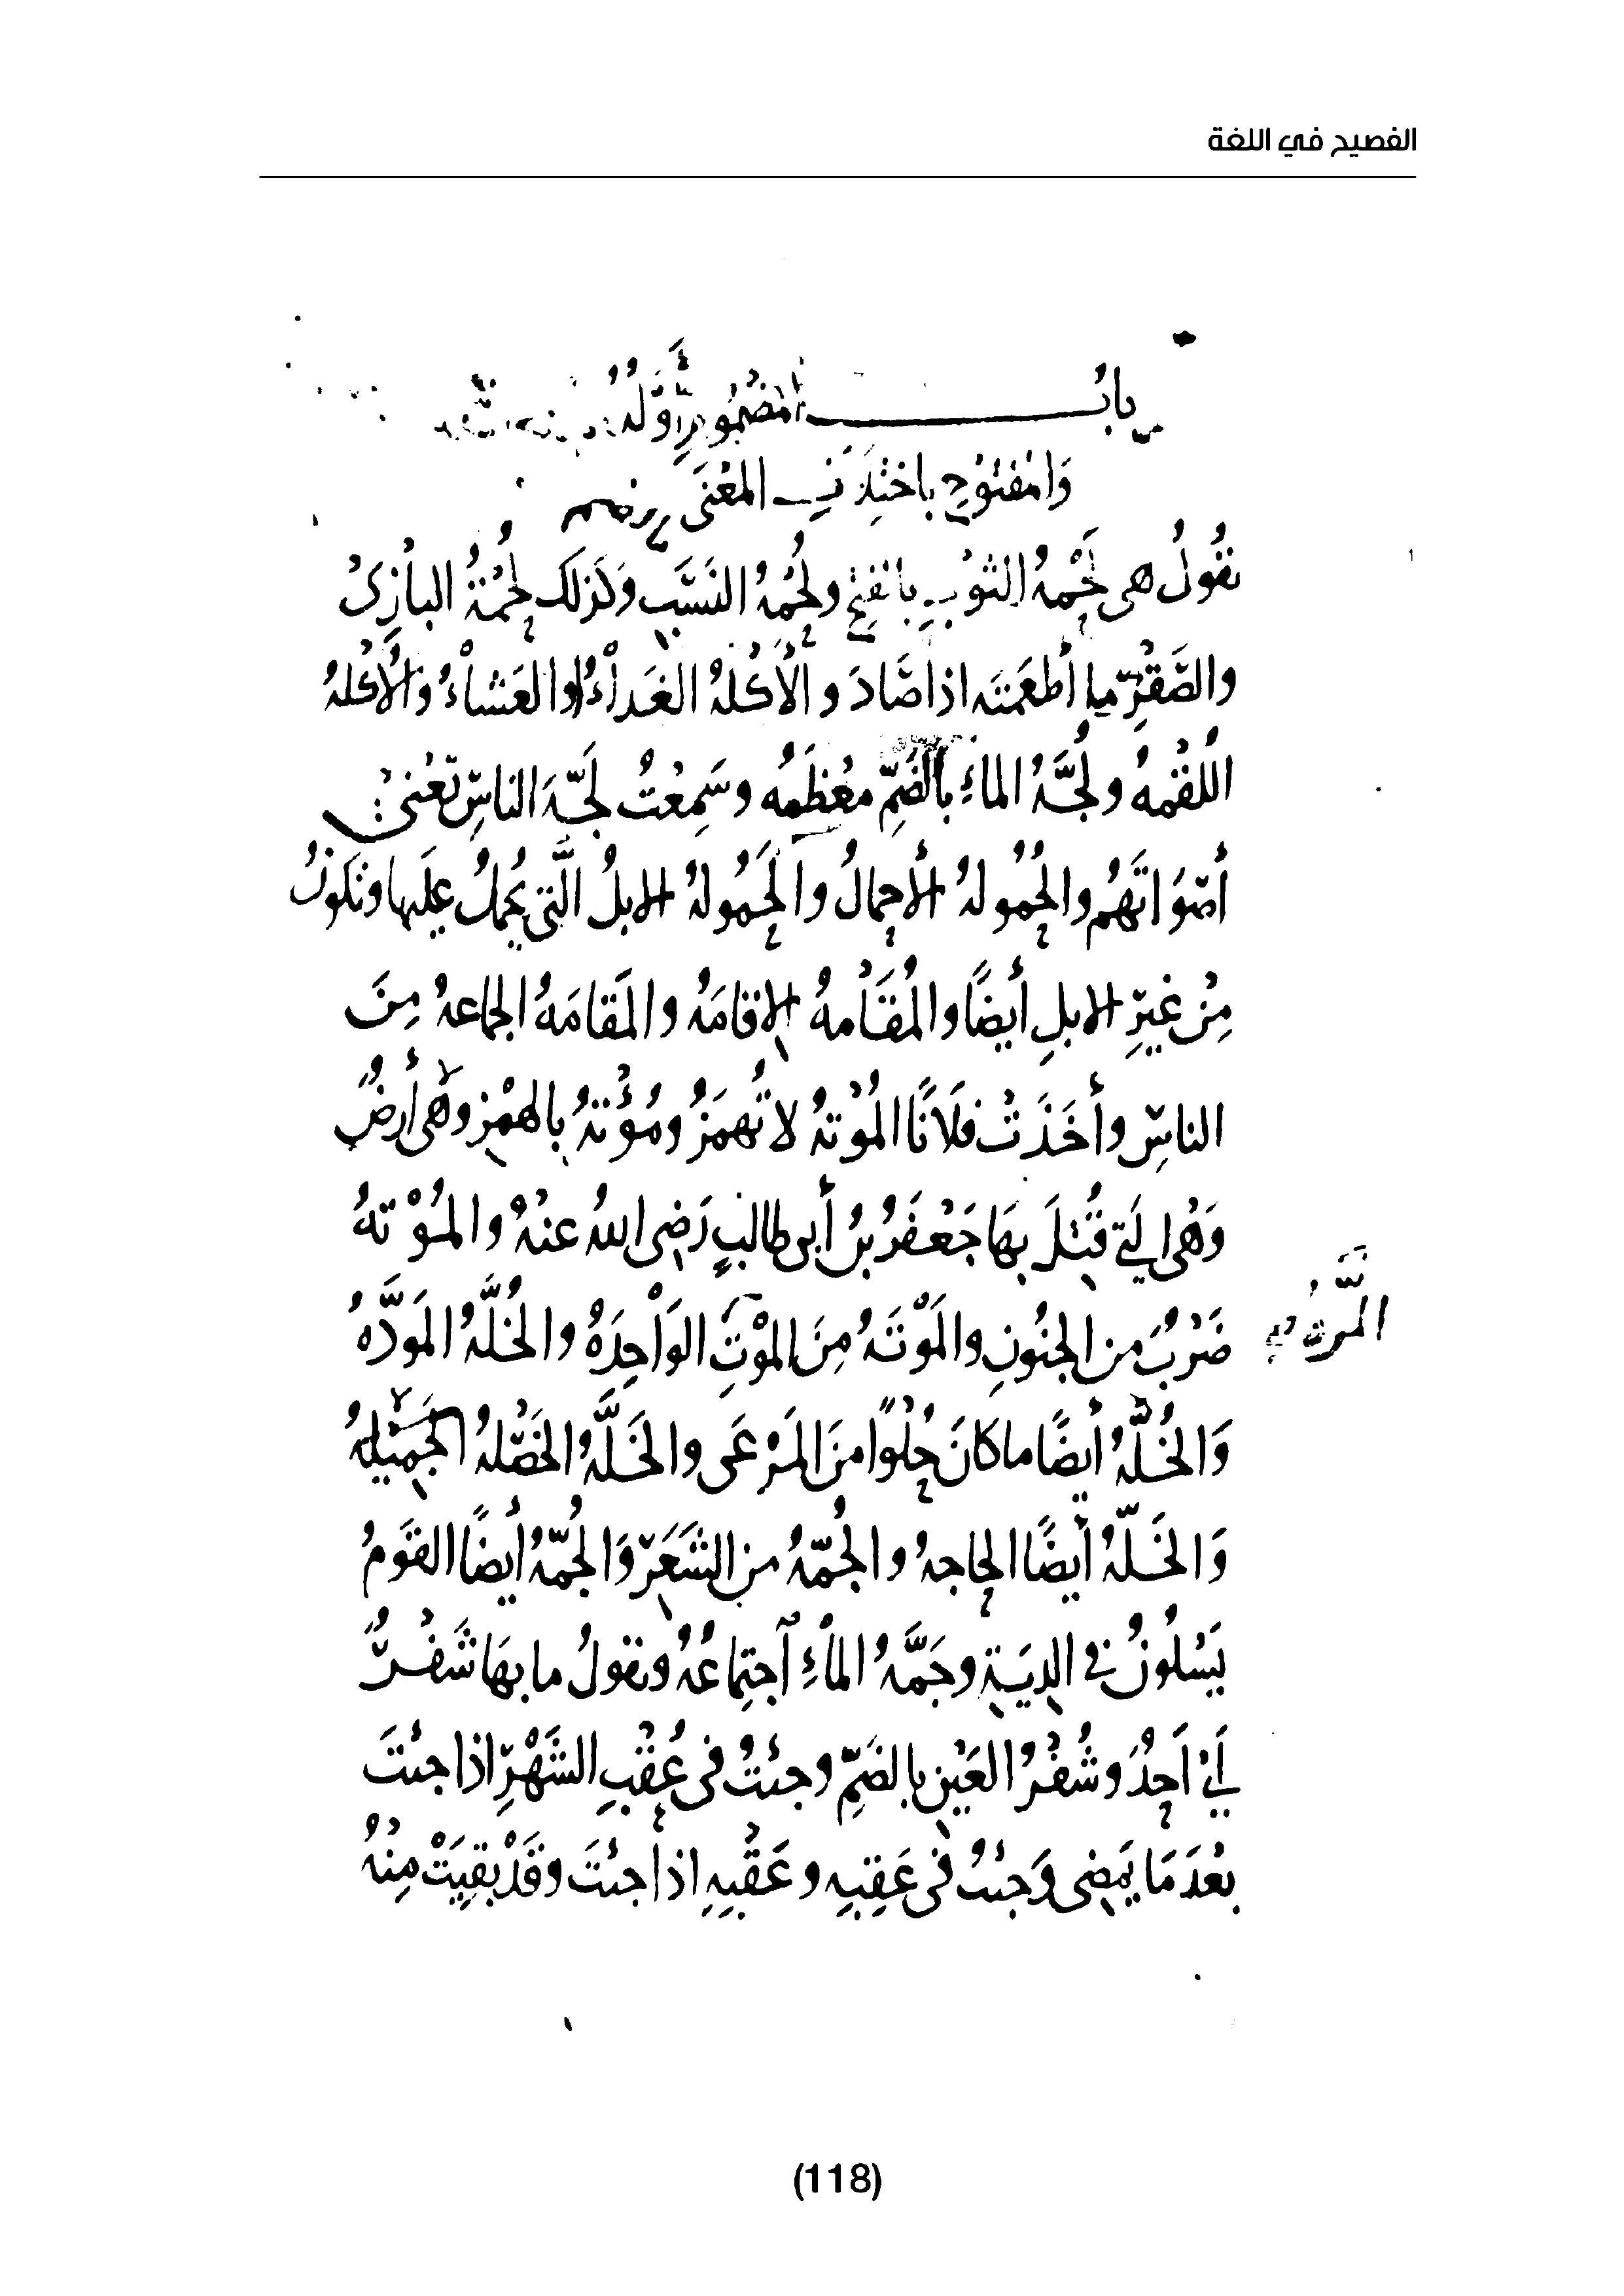 الفصيح في اللغة
بابُ المضمُومِ أَوَّلُهُ
وَالمفتُوحِ باختِلَافِ المعْنَى
تقُولُ هى لَحْمةُ الثوْبِ بالفتحِ ولُحْمةُ النَسَبِ وَكَذلك لُحْمَةُ البازِىْ
والصَّقْرِ ما أَطعَمْتَه اذا صَادَ والأُكْلةُ الغَداءُ أوالعَشاءُ وَالأُكلةُ
اللُّقْمةُ ولُجَّةُ الماءِ بالضَّمِّ مُعْظَمُه وسَمِعْتُ لَجَّةَ الناسِ تَعْنِىْ
أَصْوَاتَهُم والحُمُولةُ الأَحمالُ والحَمُولةُ الابلُ الَّتى يُحملُ عليها وتكونُ
مِنْ غَيرِ الابلِ أَيضًا والمُقَامةُ الاقامَةُ والمَقامَةُ الجماعةُ مِنَ
الناسِ وأَخَذَتْ فلَانًا المُوْتةُ لا تُهمَزُ ومُؤْتةُ بالهمْزِ وَهْى أَرضٌ
وَهْى الَتي قُتِلَ بهَا جَعْفَرُ بنُ أَبى طالبٍ رَضِىَ اللهُ عنْهُ والمُوْتةُ
ضَرْبٌ من الجنُونِ والمَوْتَةُ مِنَ المَوْتِ الوَاحِدَةُ والخُلَّةُ المَودَّةُ
وَالخُلَّةُ أَيضًا ما كانَ حُلْوًا منَ المَرْعَى والخَلَّةُ الخَصْلةُ الجَمِيْلةُ
وَالخَلَّةُ أَيضًا الحاجةُ والجُمَّةُ من الشَعَرِ وَالجُمَّةُ أَيضًا القَومُ
يَسْلُونَ في الدِيَةِ وجَمَّةُ الماءِ اجتِماعُهُ وتقولُ ما بهَا شَفْرٌ
أَيْ اَحدٌ وشُفْرُ العَيْنِ بالضَمِّ وجئتُ فى عُقْبِ الشَّهْرِ اذا جئتَ
بعْدَ مَا يَمضِى وَجئتُ فى عَقِبِه وعَقْبِهِ اذا جئتَ وقَدْ بقِيَتْ مِنْهُ
(118)